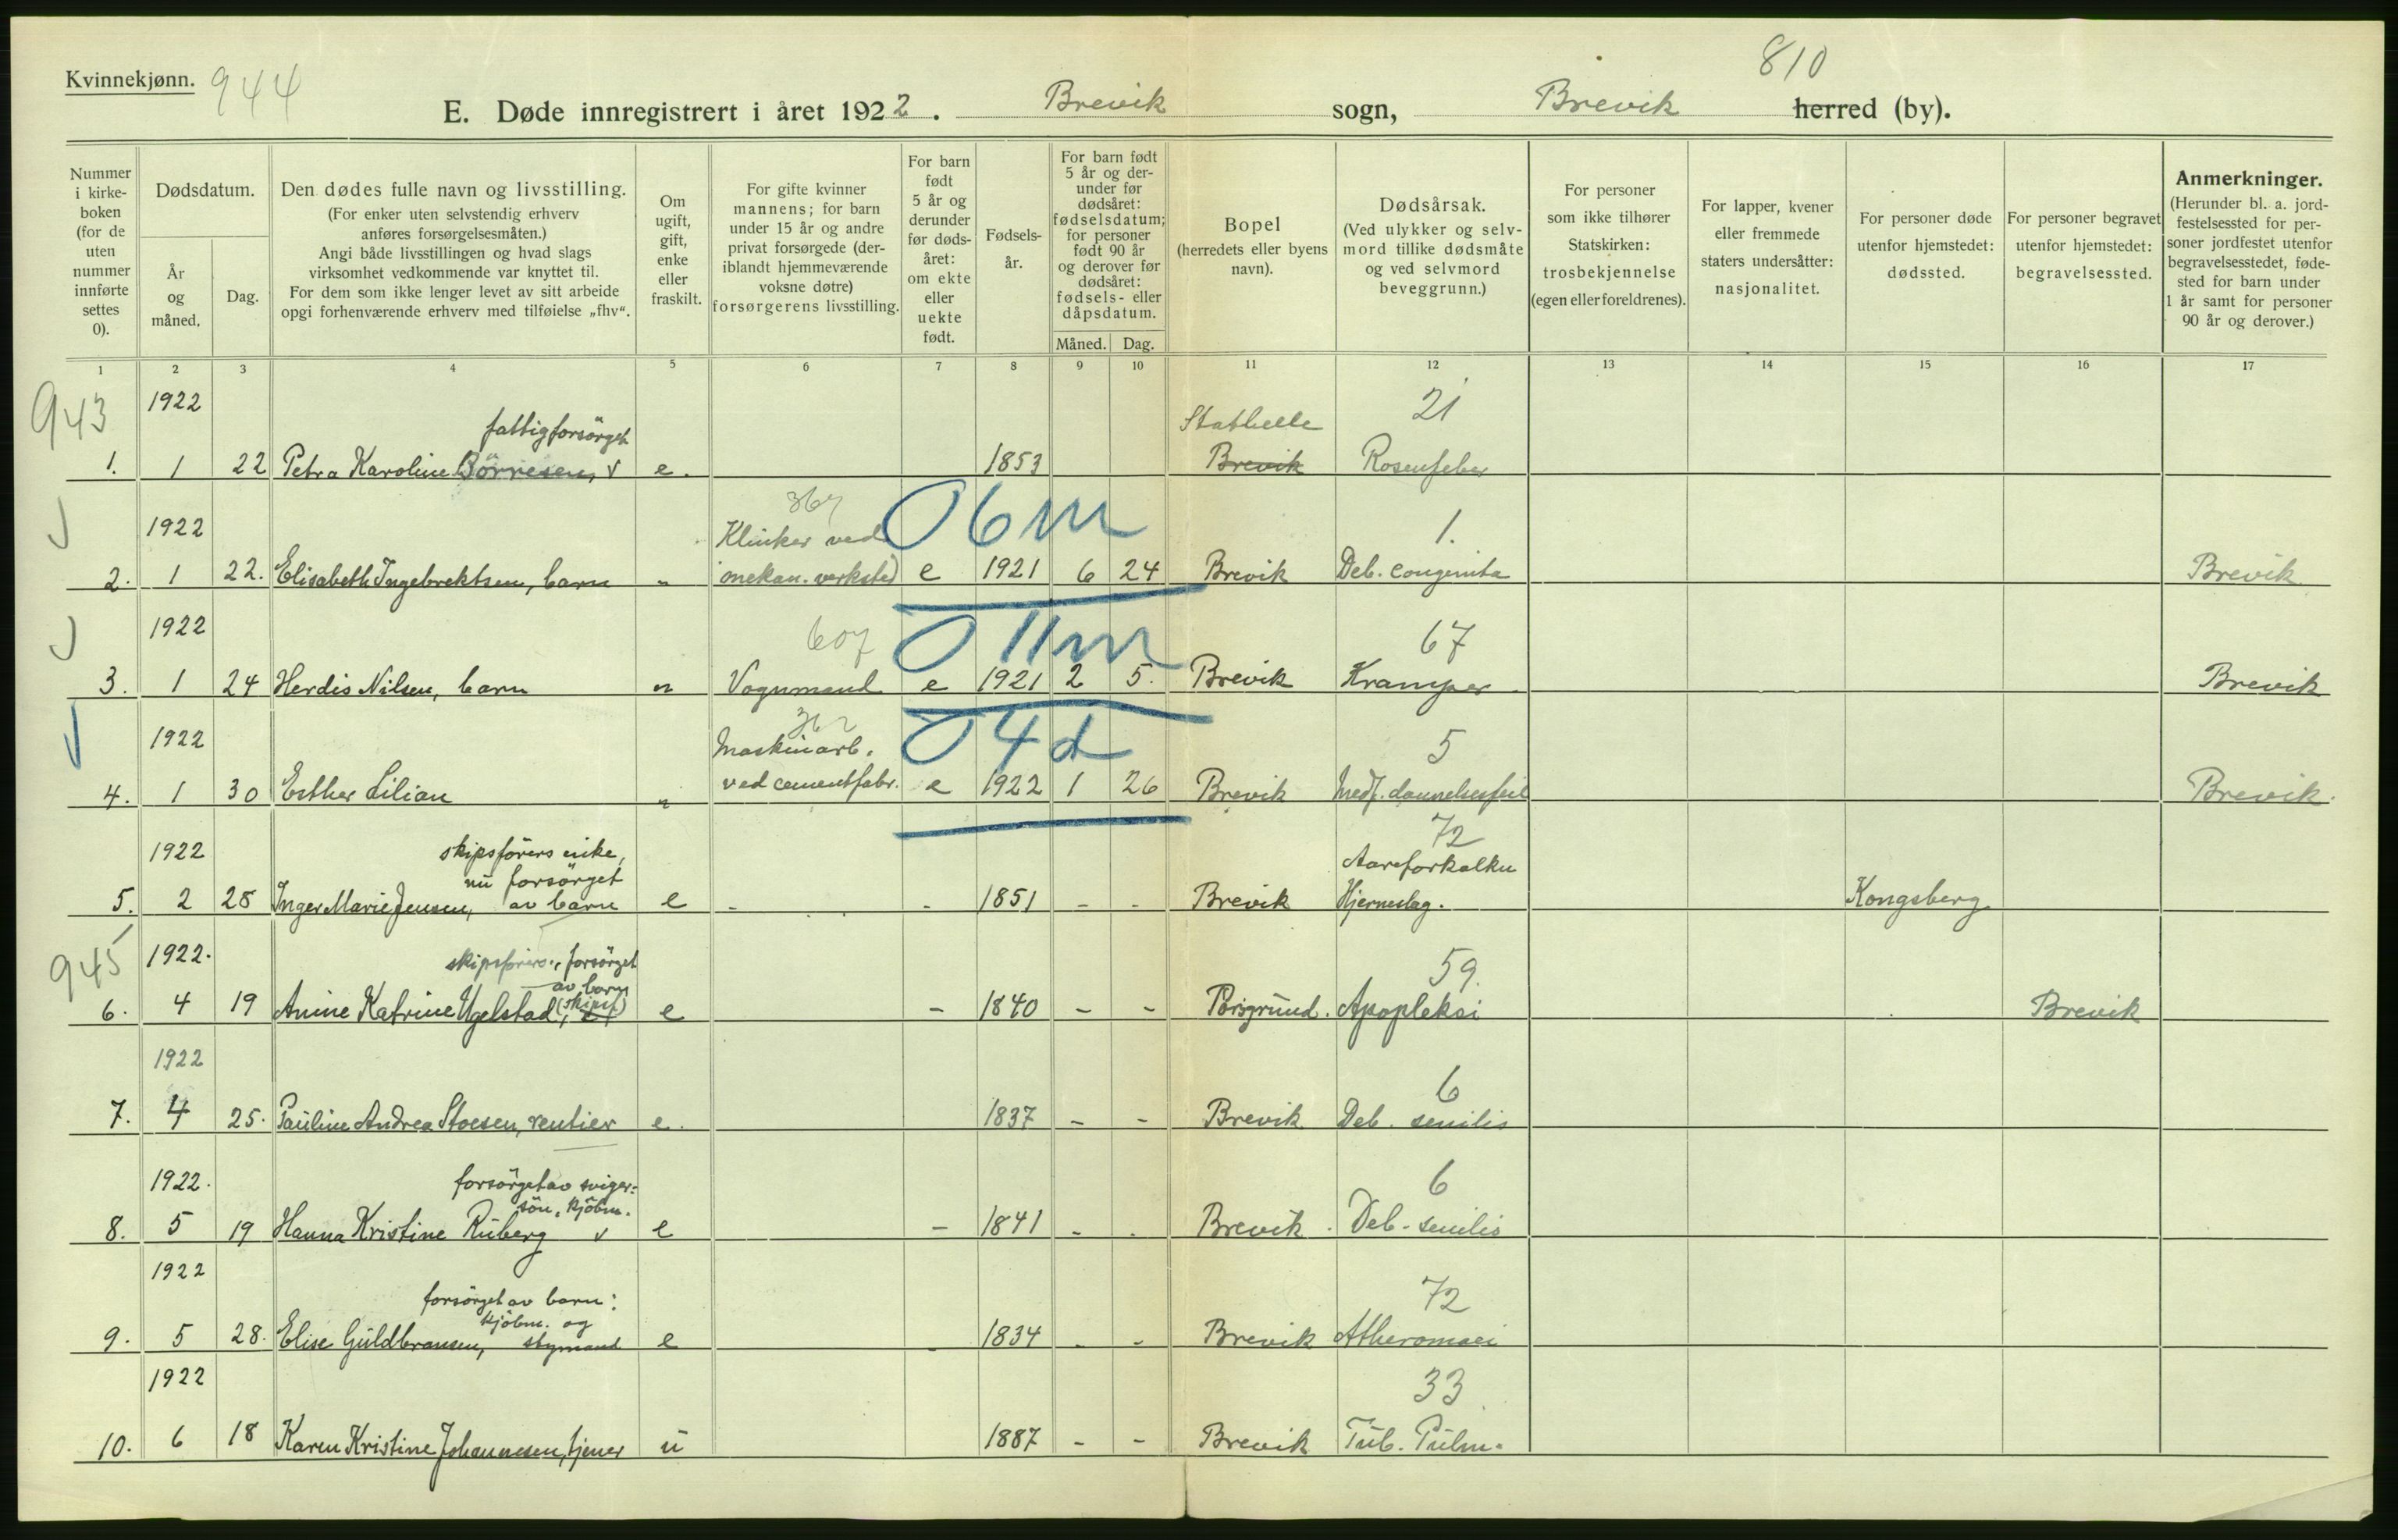 Kvinnekjønn. 944
810
E. Døde innregistrert i året 1922. Brevik sogn, Brevik herred (by).
Nummer i kirke-boken (for de uten nummer innførte settes 0).
Dødsdatum.
År og måned.
Dag.
Den dødes fulle navn og livsstilling.
(For enker uten selvstendig erhverv
anføres forsørgelsesmåten.)
Angi både livsstillingen og hvad slags
virksomhet vedkommende var knyttet til.
For dem som ikke lenger levet av sitt arbeide
opgi forhenværende erhverv med tilføielse „fhv“.
Om ugift, gift, enke eller fraskilt.
For gifte kvinner
mannens; for barn
under 15 år og andre
privat forsørgede (der-
iblandt hjemmeværende
voksne døtre)
forsørgerens livsstilling.
For barn født 5 år og derunder før døds-året: om ekte eller uekte født.
Fødsels-år.
For barn født
5 år og der-
under før
dødsåret:
fødselsdatum;
for personer
født 90 år
og derover før
dødsåret:
fødsels- eller
dåpsdatum.
Måned. Dag.
Bopel
(herredets eller byens
navn).
Dødsårsak.
(Ved ulykker og selv-
mord tillike dødsmåte
og ved selvmord
beveggrunn.)
For personer
som ikke tilhører
Statskirken:
trosbekjennelse
(egen eller foreldrenes).
For lapper, kvener
eller fremmede
staters undersåtter:
nasjonalitet.
For personer døde
utenfor hjemstedet:
dødssted.
For personer begravet
utenfor hjemstedet:
begravelsessted.
Anmerkninger.
(Herunder bl. a. jord-
festelsessted for per-
soner jordfestet utenfor
begravelsesstedet, føde-
sted for barn under
1 år samt for personer
90 år og derover.)
1 2 3 4 5 6 7 8 9 10 11 12 13 14 15 16 17
943 1922 fattigforsörget Stathelle 21
1. 1 22 Petra Karoline Börresen, v e. 1853 Brevik Rosenfeber
1922 367 Klinker ved 06m 1.
2. 1 22. Elisabeth Ingebrektsen, barn " mekan. verksted e 1921 6 24 Brevik Deb. congenita Brevik
1922 607 011m 67
3. 1 24 Herdis Nilsen, barn " Vognmand e 1921 2 5. Brevik Kramper Brevik
1922 362 Maskinarb. 04d 5
4. 1 30 Esther Lilian " ved cementfabr. e 1922 1 26 Brevik Medf. dannelsesfeil Brevik.
72
1922 skipsförers enke, Aareforkalkn
nu forsörget
5. 2 28 Inger Marie Jensen, av barn e - - 1851 - - Brevik Hjerneslag. Kongsberg
945 1922. skipsförers, forsörget 59.
av barn
6. 4 19 Anine Katrine Ugelstad, e - 1840 - - Porsgrund. Apopleksi Brevik
1922 6
7. 4 25. Pauline Andrea Stoesen, rentier e. 1837 - - Brevik Deb. senilis
1922. forsörget av sviger= 6
sön, kjöbm.
8. 5 19 Hanna Kristine Ruberg v e - 1841 - - Brevik. Deb. senilis
1922 forsörget av barn: 72
kjöbm. og
9. 5 28. Elise Guldbransen, styrmand e - 1834 - - Brevik Atheromasi
1922 33
10. 6 18 Karen Kristine Johannesen, tjener u 1887 - - Brevik Tub. Pulm.